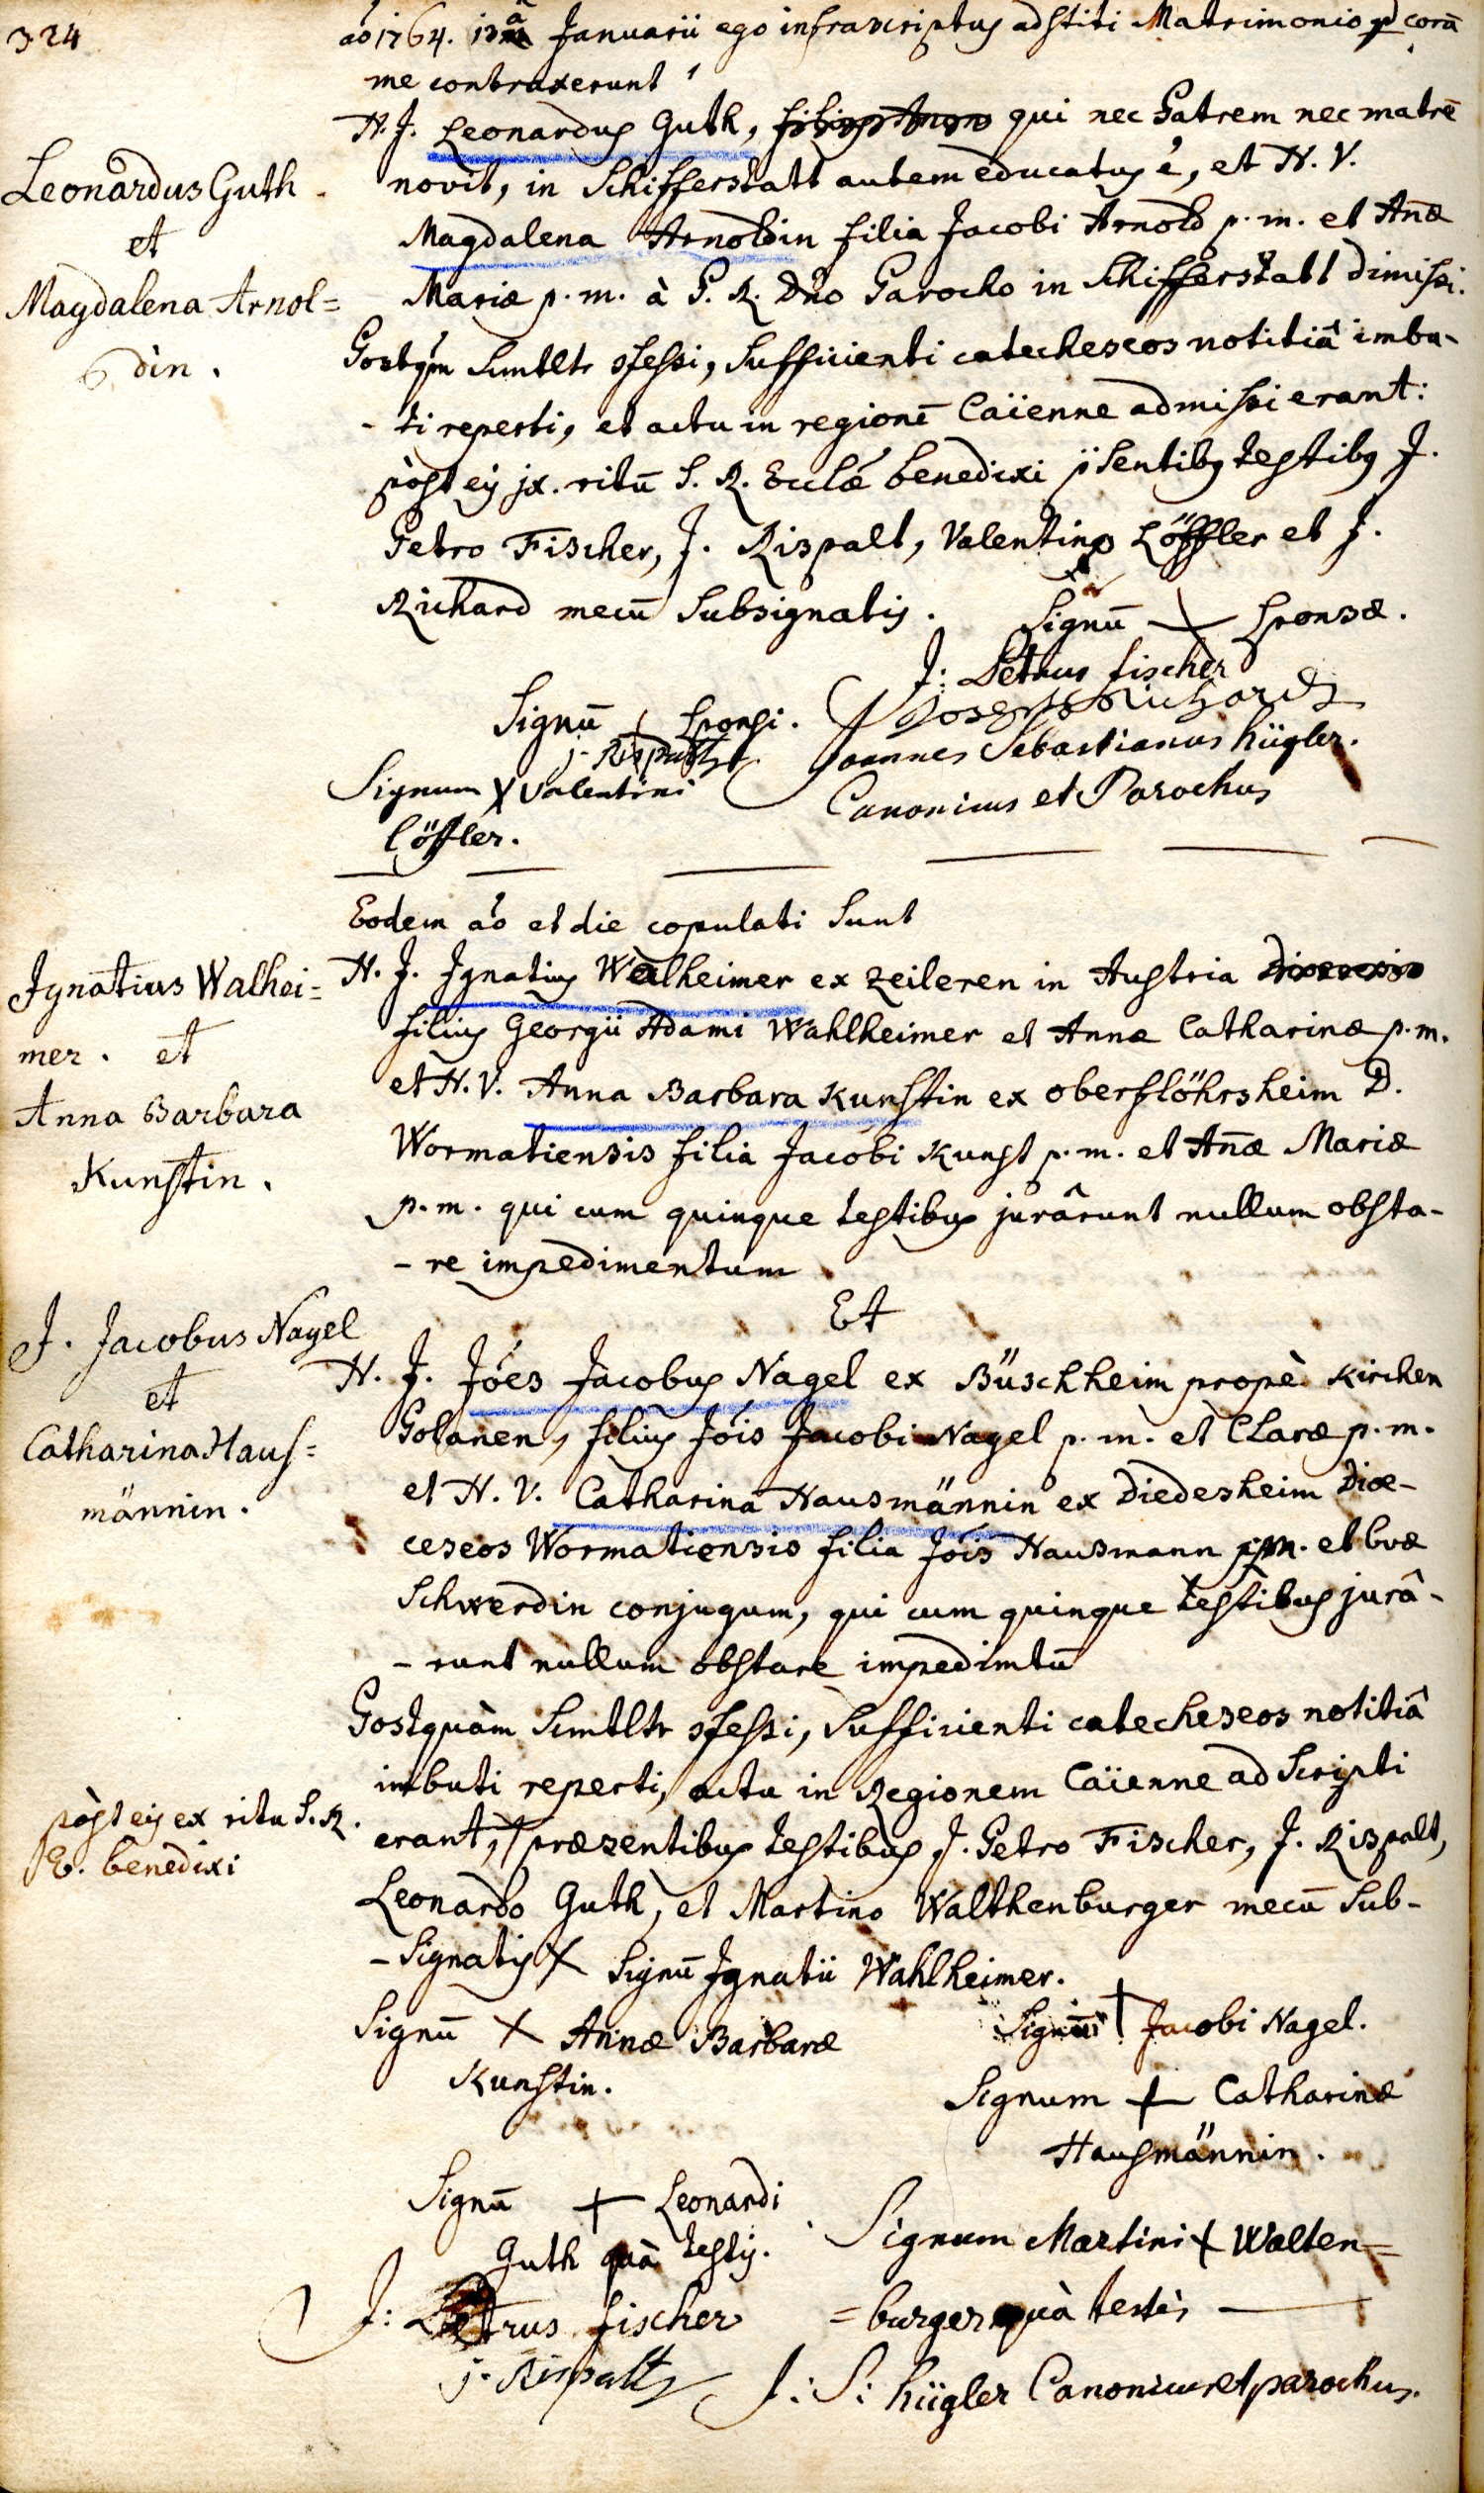 324
aó 1764. 13â Januarii ego infrascriptus adstiti Matrimonio qd corā
me contraxerunt
H. J. Leonardus Guth, qui nec Patrem nec matrē
novit, in Schifferstatt autem educatus é, et H. V.
Magdalena Arnoldin filia Jacobi Arnold p. m. et Añæ
Mariæ p. m. à P. R. Dño Parocho in Schifferstatt dimissi.
Leonardus Guth
et
Magdalena Arnol=
din.
Postqm Smtltr ɔfessi, Sufficienti catecheseos notitiâ imbu-
- ti reperti, et actu in regionē Caïenne admissi erant:
pòst eis jx. ritū S. R. Ecclæ benedixi p̈sentibus testibus J.
Petro Fischer, J. Rispalt, Valentino Löffler et J.
Richard mecū Subsignatis.
Signū + Sponsæ.
J: Petrus fischer
Signū + Sponsi.
Joseph Richard
j. Rispalt
Joannes Sebastianus hügler.
Signum X Valentini
Canonicus et Parochus
löffler.
Eodem aó et die copulati Sunt
H. J. Ignatius Walheimer ex Zeileren in Austria
filius Georgii Adami Wahlheimer et Annæ Catharinæ p. m.
et H. V. Anna Barbara Kunstin ex oberflöhrsheim D.
Wormatiensis filia Jacobi Kunst p. m. et Añæ Mariæ
p. m. qui cum quinque testibus jurârunt nullum obsta-
- re impedimentum
Ignatius Walhei=
mer. et
Anna Barbara
Kunstin.
Et
J. Jacobus Nagel
et
Catharina Haus=
männin.
H. J. Jóes Jacobus Nagel ex Büschheim propè Kirchen
Polanen, filius Jóis Jacobi Nagel p. m. et Claræ p. m.
et H. V. Catharina Hausmännin ex Diedesheim Diœ-
ceseos Wormatiensis filia Jóis Hausmann p. m. et Evæ
Schwerdin conjugum, qui cum quinque testibus jurâ-
- runt nullum obstare impedimtū
Postquàm Smtltr ɔfessi, Sufficienti catecheseos notitiâ
imbuti reperti, actu in Regionem Caïenne ad Scripti
erant, præsentibus testibus J. Petro Fischer, J. Rispalt,
pòst eis ex ritu S. R.
E. benedixi
Leonardo Guth, et Martino Walthenburger mecū Sub-
- Signatis X Signū Ignatii Wahlheimer.
Signū X Annæ Barbaræ
Kunstin.
Signū + Jacobi Nagel.
Signum + Catharinæ
Hausmännin.
Signū + Leonardi
Guth quà testis.
Signum Martini + Walten=
J: Petrus fischer
= burger quà testis
j. Rispalt
J: S: hügler Canonicus et parochus.